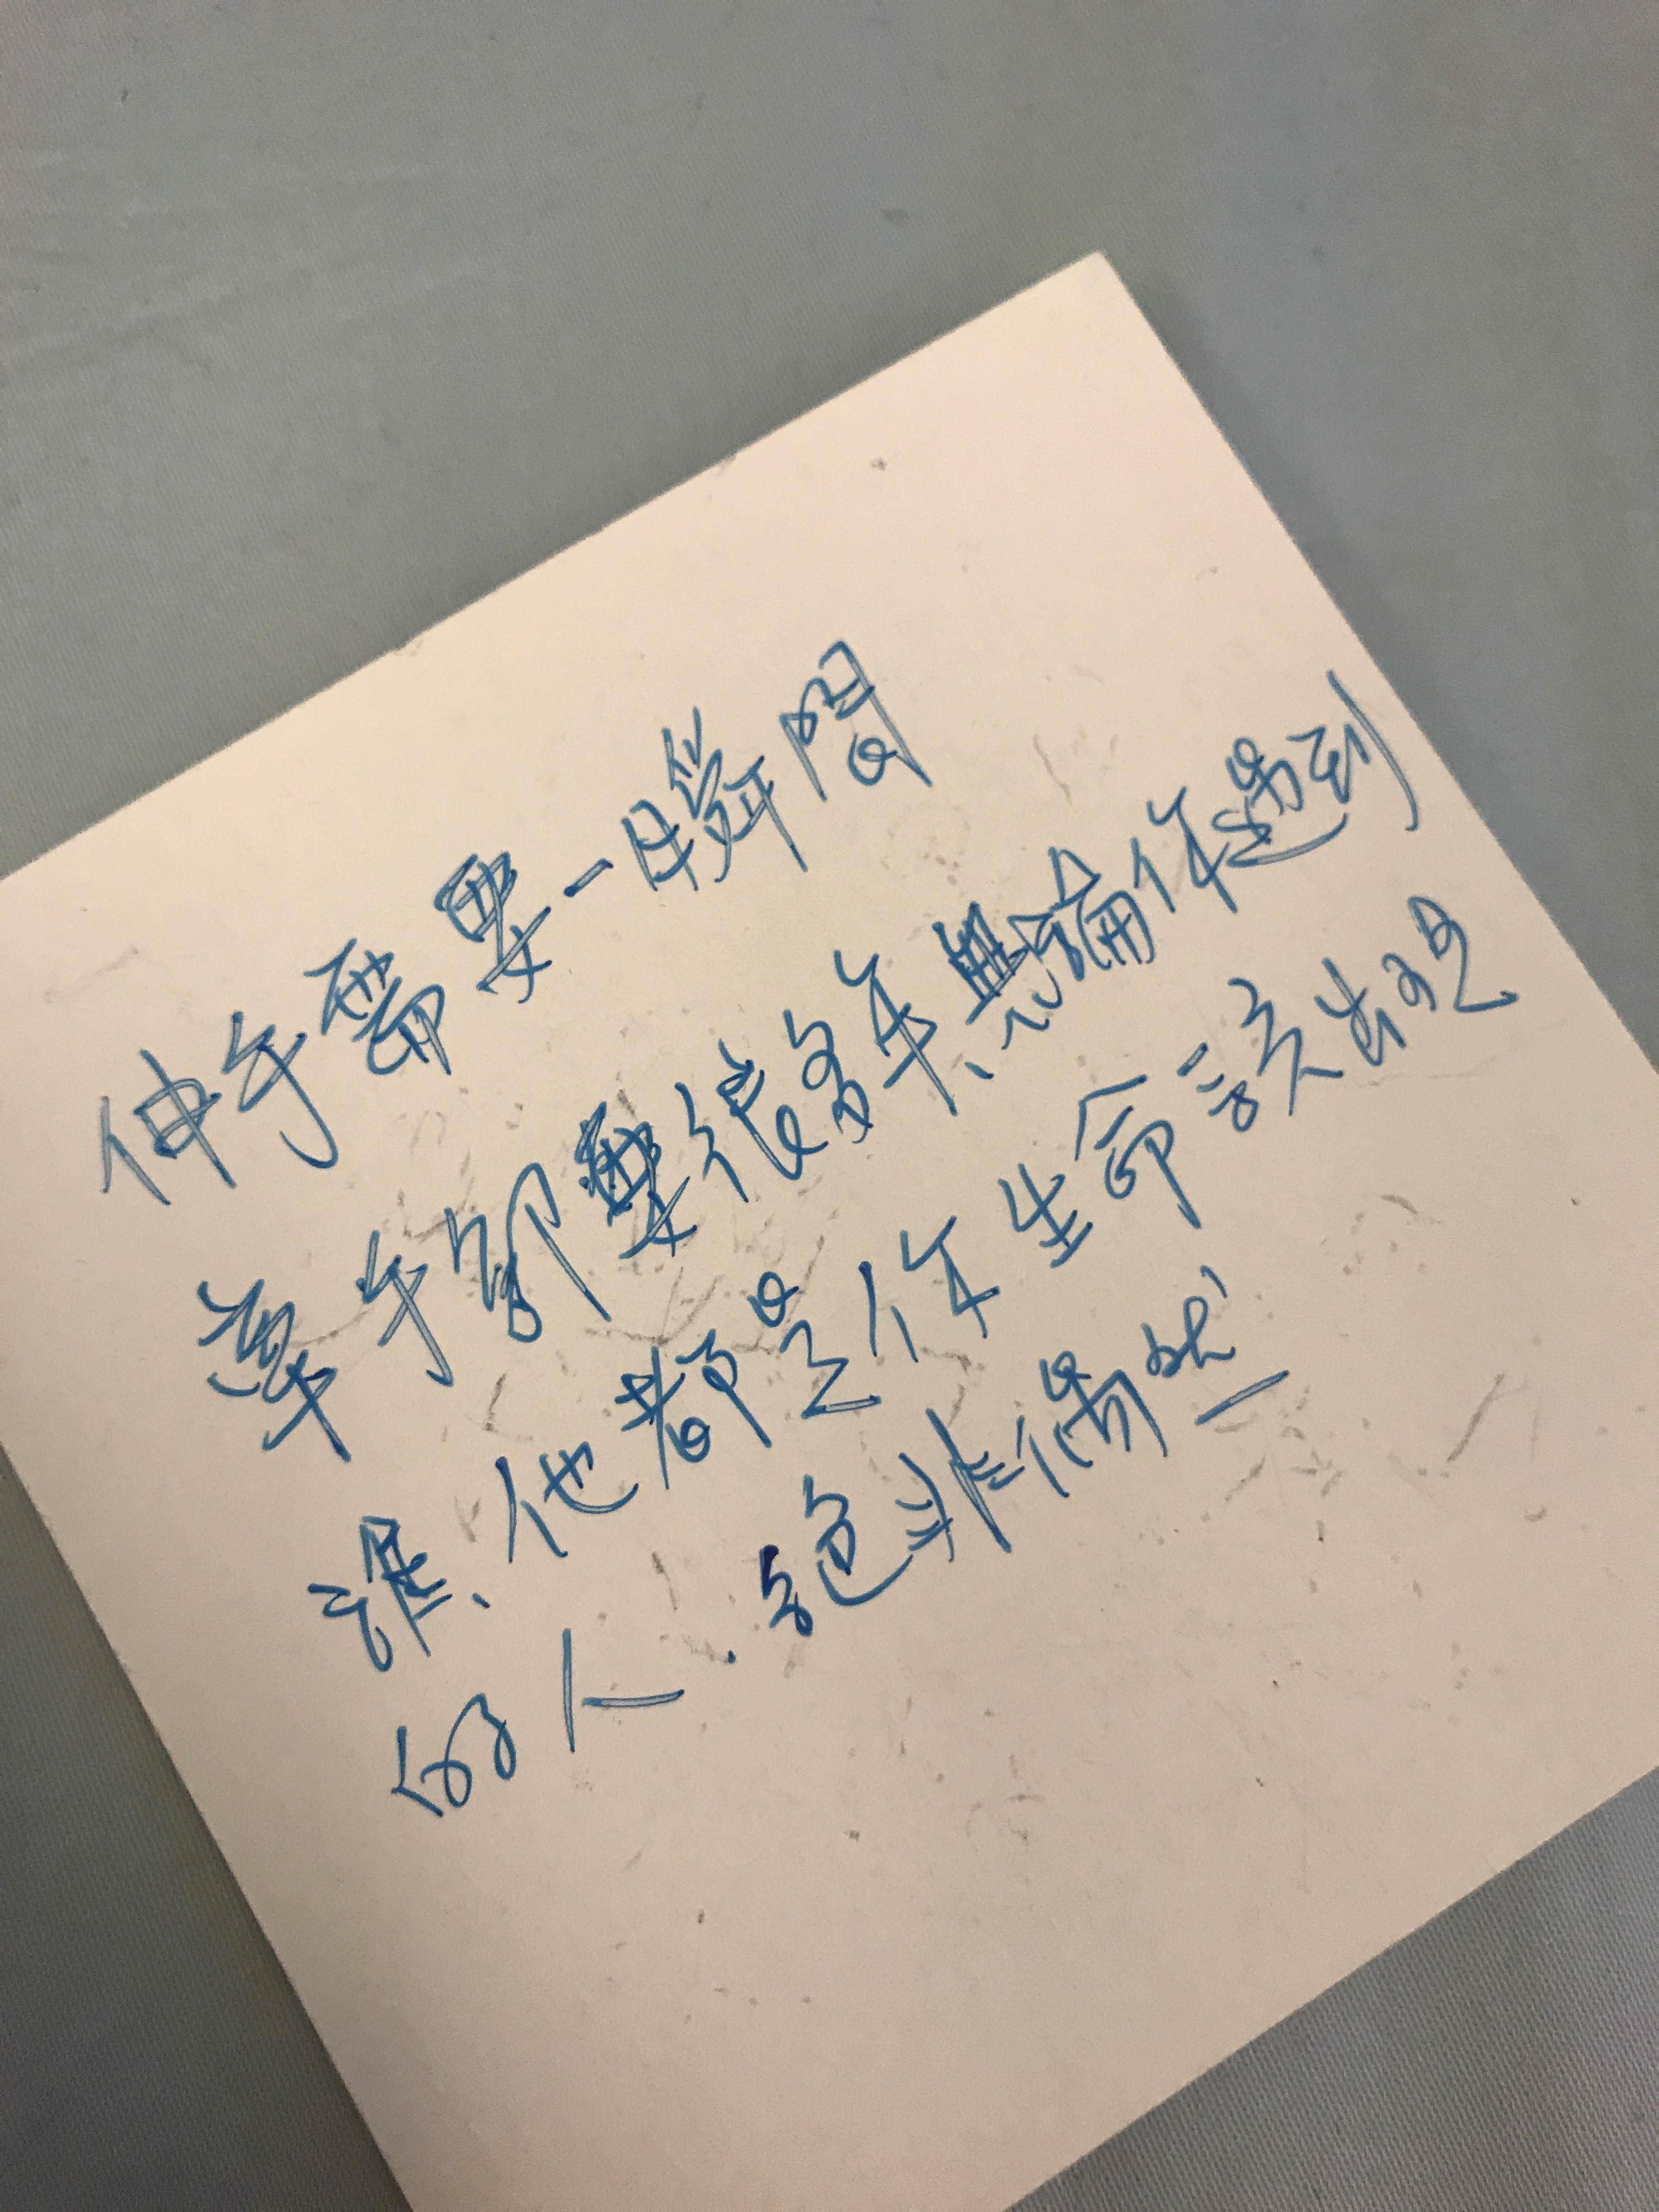 伸手需要一瞬間
牽手卻要很多年無論你遇到
誰、他都是你生命該出現
的人．絕非偶然